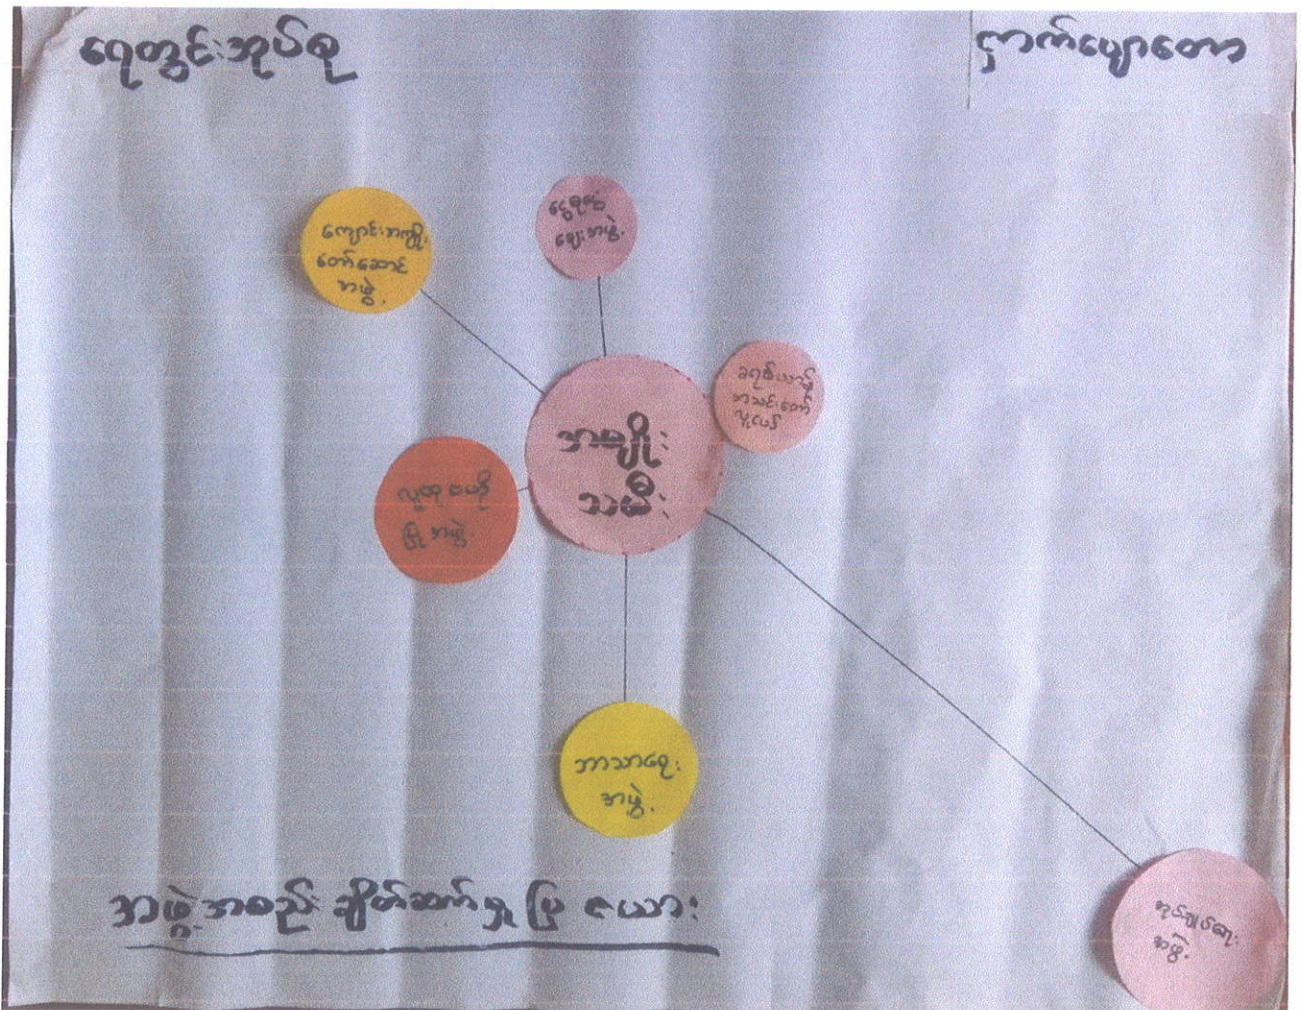 ရေတွင်းအုပ်စု
ငှက်ပျောတော
ကျောင်းအကျိုး
တော်ဆောင်
အဖွဲ့
ငွေစုငွေ
ချေးအဖွဲ့
ခရစ်ယာန်
အသင်းတော်
လူငယ်
အမျိုး
သမီး
လူထုဗဟို
ပြုအဖွဲ့
ဘာသာရေး
အဖွဲ့
အုပ်ချုပ်ရေး
အဖွဲ့
အဖွဲ့အစည်း ချိတ်ဆက်မှု ပြ ဇယား